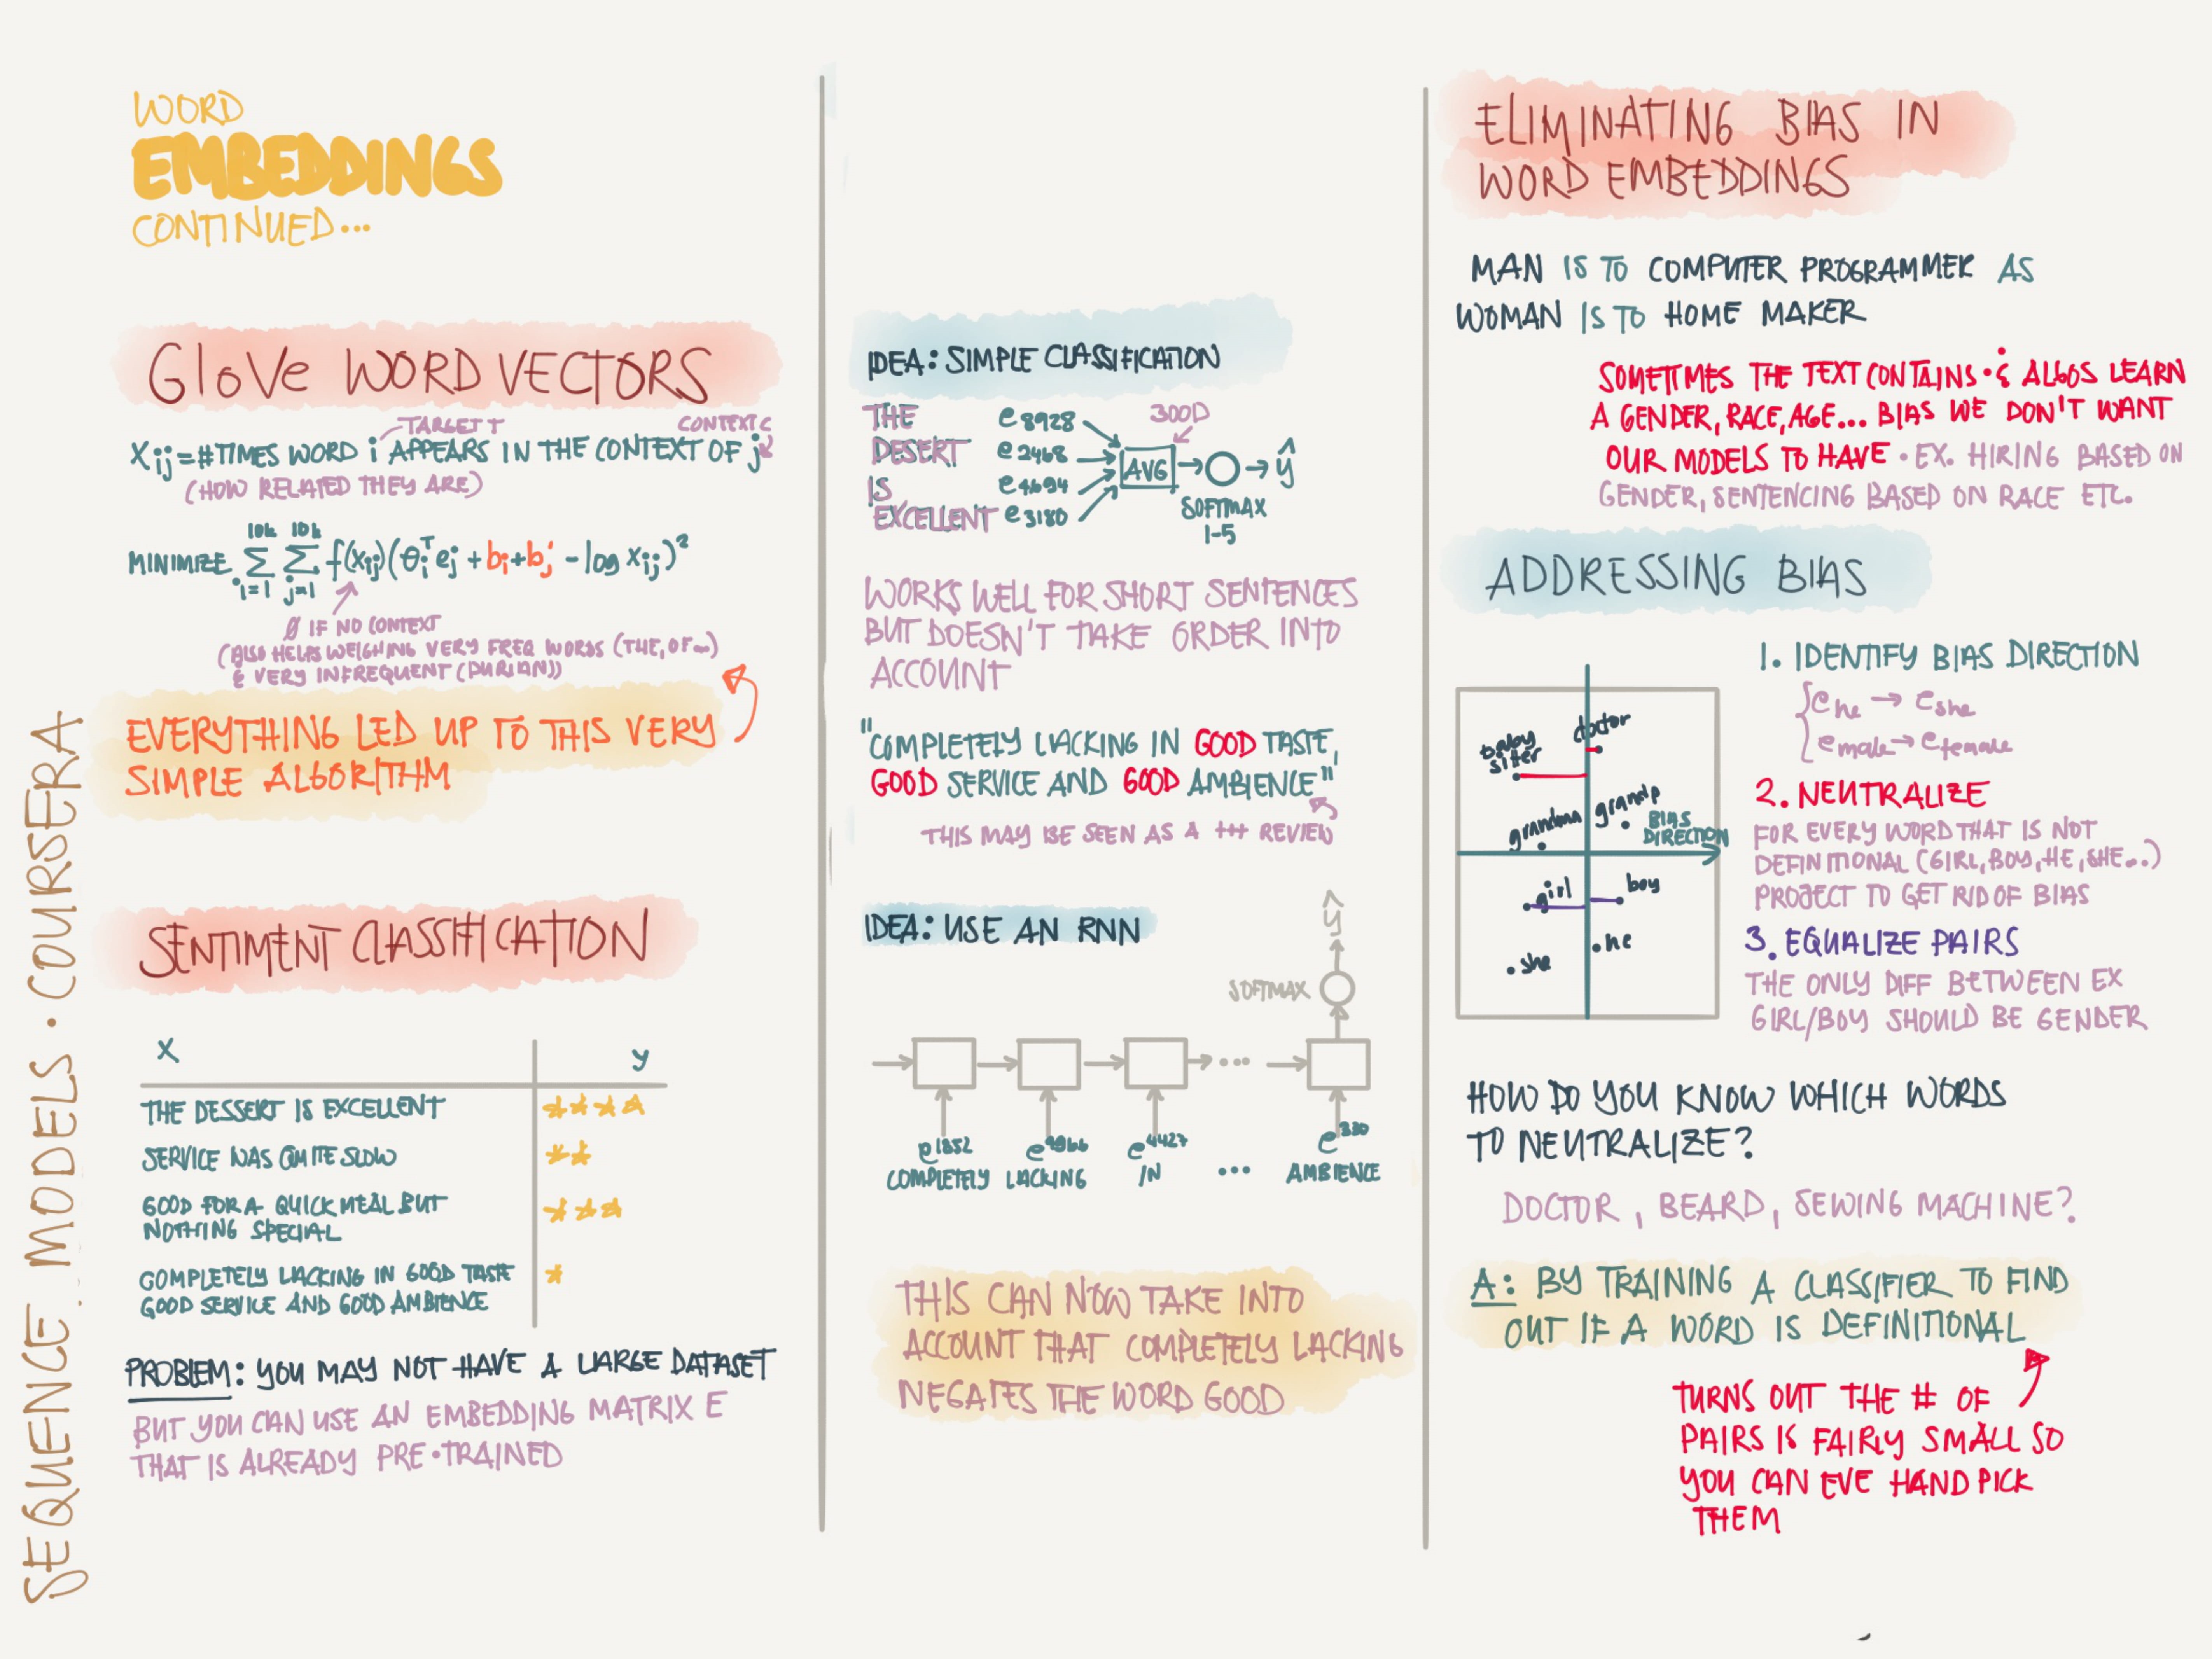 WORD
EMBEDDINGS
CONTINUED...
GloVe WORD VECTORS
TARGET T
CONTEXT C
Xij = # TIMES WORD i APPEARS IN THE CONTEXT OF j
(HOW RELATED THEY ARE)
10k 10k
MINIMIZE Σ Σ f(Xij)(θiᵀej + bi + b'j - log Xij)²
i=1 j=1
Ø IF NO CONTEXT
(ALSO HELPS WEIGHING VERY FREQ WORDS (THE, OF...)
& VERY INFREQUENT (DURIAN))
EVERYTHING LED UP TO THIS VERY
SIMPLE ALGORITHM
SENTIMENT CLASSIFICATION
X y
THE DESSERT IS EXCELLENT
SERVICE WAS QUITE SLOW
GOOD FOR A QUICK MEAL BUT
NOTHING SPECIAL
COMPLETELY LACKING IN GOOD TASTE
GOOD SERVICE AND GOOD AMBIENCE
PROBLEM: YOU MAY NOT HAVE A LARGE DATASET
BUT YOU CAN USE AN EMBEDDING MATRIX E
THAT IS ALREADY PRE-TRAINED
SEQUENCE MODELS · COURSERA
IDEA: SIMPLE CLASSIFICATION
THE e8928 300D
DESERT e2468
AVG ŷ
IS e4694
EXCELLENT e3180
SOFTMAX
1-5
WORKS WELL FOR SHORT SENTENCES
BUT DOESN'T TAKE ORDER INTO
ACCOUNT
"COMPLETELY LACKING IN GOOD TASTE,
GOOD SERVICE AND GOOD AMBIENCE"
THIS MAY BE SEEN AS A +++ REVIEW
IDEA: USE AN RNN
ŷ
SOFTMAX
...
e1852 e4966 e4427 e330
COMPLETELY LACKING IN ... AMBIENCE
THIS CAN NOW TAKE INTO
ACCOUNT THAT COMPLETELY LACKING
NEGATES THE WORD GOOD
ELIMINATING BIAS IN
WORD EMBEDDINGS
MAN IS TO COMPUTER PROGRAMMER AS
WOMAN IS TO HOME MAKER
SOMETIMES THE TEXT CONTAINS · & ALGOS LEARN
A GENDER, RACE, AGE... BIAS WE DON'T WANT
OUR MODELS TO HAVE · EX. HIRING BASED ON
GENDER, SENTENCING BASED ON RACE ETC.
ADDRESSING BIAS
baby
sitter
doctor
grandma
grandp
BIAS
DIRECTION
girl
boy
she
he
1. IDENTIFY BIAS DIRECTION
ehe → eshe
emale → efemale
2. NEUTRALIZE
FOR EVERY WORD THAT IS NOT
DEFINITIONAL (GIRL, BOY, HE, SHE...)
PROJECT TO GET RID OF BIAS
3. EQUALIZE PAIRS
THE ONLY DIFF BETWEEN EX
GIRL/BOY SHOULD BE GENDER
HOW DO YOU KNOW WHICH WORDS
TO NEUTRALIZE?
DOCTOR, BEARD, SEWING MACHINE?
A: BY TRAINING A CLASSIFIER TO FIND
OUT IF A WORD IS DEFINITIONAL
TURNS OUT THE # OF
PAIRS IS FAIRLY SMALL SO
YOU CAN EVE HAND PICK
THEM